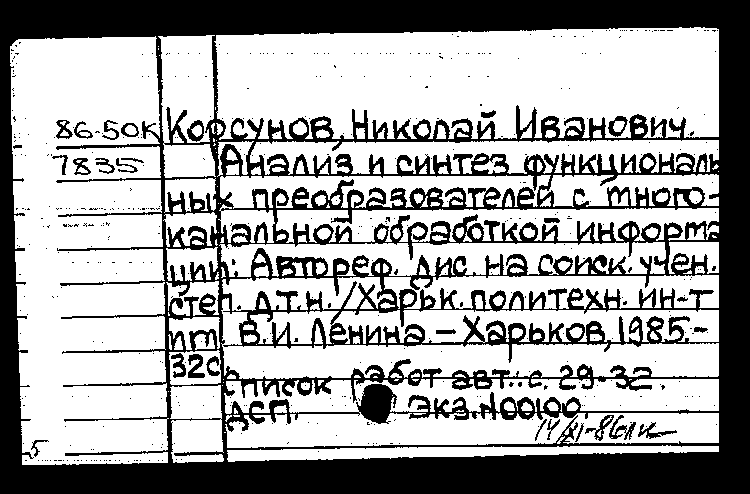 86-50К Корсунов, Николай Иванович.
7835 Анализ и синтез функциональ
ных преобразователей с много-
канальной обработкой информа
ции: Автореф. дис. на соиск. учен.
степ. д.т.н. / Харьк. политехн. ин-т
им. В.И. Ленина. – Харьков, 1985.-
32с
Список работ авт.: с. 29-32.
ДСП. Экз. N00100.
14/XI-86
5